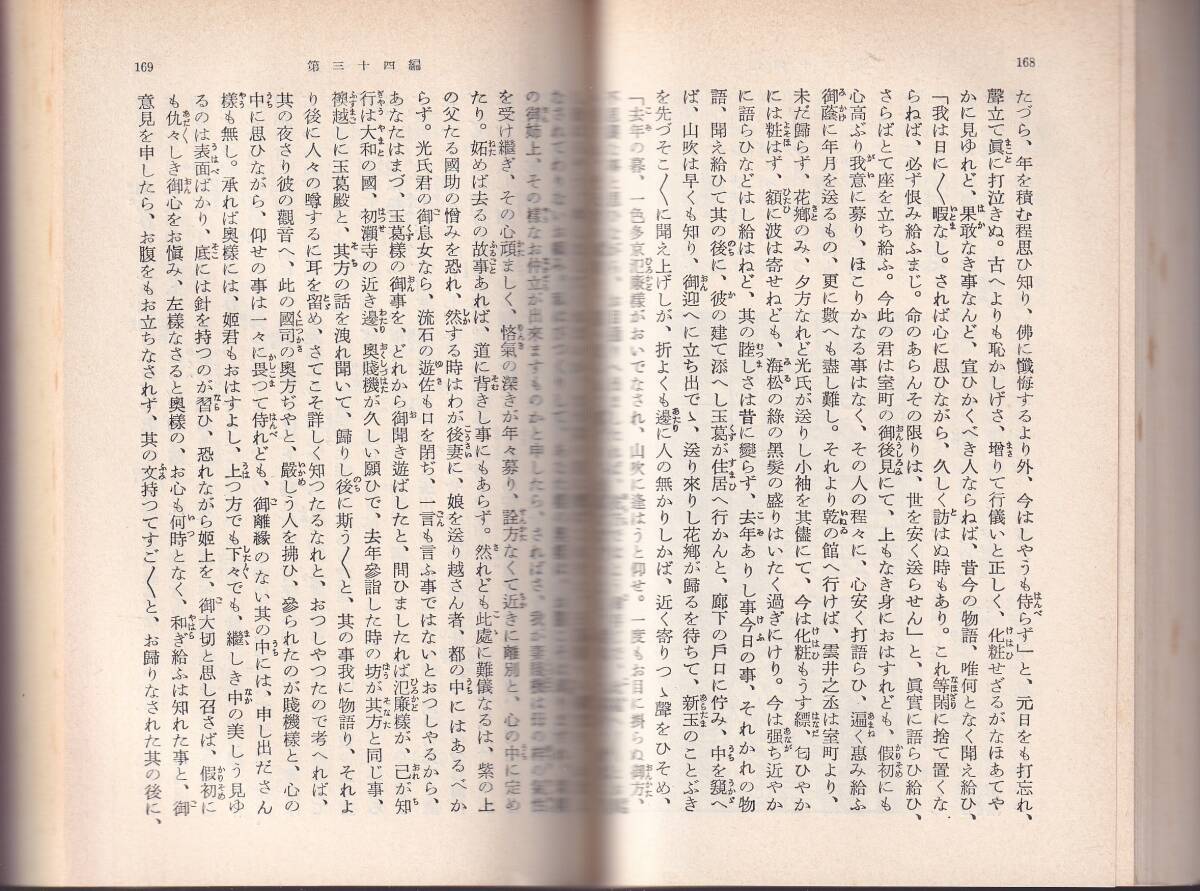 168
たづら、年を積む程思ひ知り、佛に懺悔するより外、今はしやうも侍らず」と、元日をも打忘れ、
聲立て眞に打泣きぬ。古へよりも恥かしげさ、增りて行儀いと正しく、化粧せざるがなほあてや
かに見ゆれど、果敢なき事なんど、宣ひかくべき人ならねば、昔今の物語、唯何となく聞え給ひ、
「我は日に〳〵暇なし。されば心に思ひながら、久しく訪はぬ時もあり。これ等閑に捨て置くな
らねば、必ず恨み給ふまじ。命のあらんその限りは、世を安く送らせん」と、眞實に語らひ給ひ、
さらばとて座を立ち給ふ。今此の君は室町の御後見にて、上もなき身におはすれども、假初にも
心高ぶり我意に募り、ほこりかなる事はなく、その人の程々に、心安く打語らひ、遍く惠み給ふ
御蔭に年月を送るもの、更に數へも盡し難し。それより乾の館へ行けば、雲井之丞は室町より、
未だ歸らず、花鄕のみ、夕方なれど光氏が送りし小袖を其儘にて、今は化粧もうす縹、匂ひやか
には粧はず、額に波は寄せねども、海松の綠の黑髮の盛りはいたく過ぎにけり。今は强ち近やか
に語らひなどはし給はねど、其の睦しさは昔に變らず、去年ありし事今日の事、それかれの物
語、聞え給ひて其の後に、彼の建て添へし玉葛が住居へ行かんと、廊下の戶口に佇み、中を窺へ
ば、山吹は早くも知り、御迎へに立ち出でゝ、送り來りし花鄕が歸るを待ちて、新玉のことぶき
を先づそこ〳〵に聞え上げしが、折よくも邊に人の無かりしかば、近く寄りつゝ聲をひそめ、
「去年の暮、一色多京氾廉樣がおいでなされ、山吹に逢はうと仰せ。一度もお目に掛らぬ御方、
169
第三十四編
の御姉上、その樣なお仲立が出來ますものかと申したら、さればさ、我が妻
を受け繼ぎ、その心頑ましく、悋氣の深きが年々募り、詮方なくて近きに離別と、心の中に定め
たり。妬めば去るの故事あれば、道に背きし事にもあらず。然れども此處に難儀なるは、紫の上
の父たる國助の憎みを恐れ、然する時はわが後妻に、娘を送り越さん者、都の中にはあるべか
らず。光氏君の御息女なら、流石の遊佐も口を閉ぢ、一言も言ふ事ではないとおつしやるから、
あなたはまづ、玉葛樣の御事を、どれから御聞き遊ばしたと、問ひましたれば氾廉樣が、己が知
行は大和の國、初瀨寺の近き邊、奧賤機が久しい願ひで、去年參詣した時の坊が其方と同じ事、
襖越しに玉葛殿と、其方の話を洩れ聞いて、歸りし後に斯う〳〵と、其の事我に物語り、それよ
り後に人々の噂するに耳を留め、さてこそ詳しく知つたるなれと、おつしやつたので考へれば、
其の夜さり彼の觀音へ、此の國司の奧方ぢやと、嚴しう人を拂ひ、參られたのが賤機樣と、心の
中に思ひながら、仰せの事は一々に畏つて侍れども、御離緣のない其の中には、申し出ださん
樣も無し。承れば奧樣には、姬君もおはすよし、上つ方でも下々でも、繼しき中の美しう見ゆ
るのは表面ばかり、底には針を持つのが習ひ、恐れながら姬上を、御大切と思し召さば、假初に
も仇々しき御心をお愼み、左樣なさると奧樣の、お心も何時となく、和ぎ給ふは知れた事と、御
意見を申したら、お腹をもお立ちなされず、其の文持つてすご〳〵と、お歸りなされた其の後に、